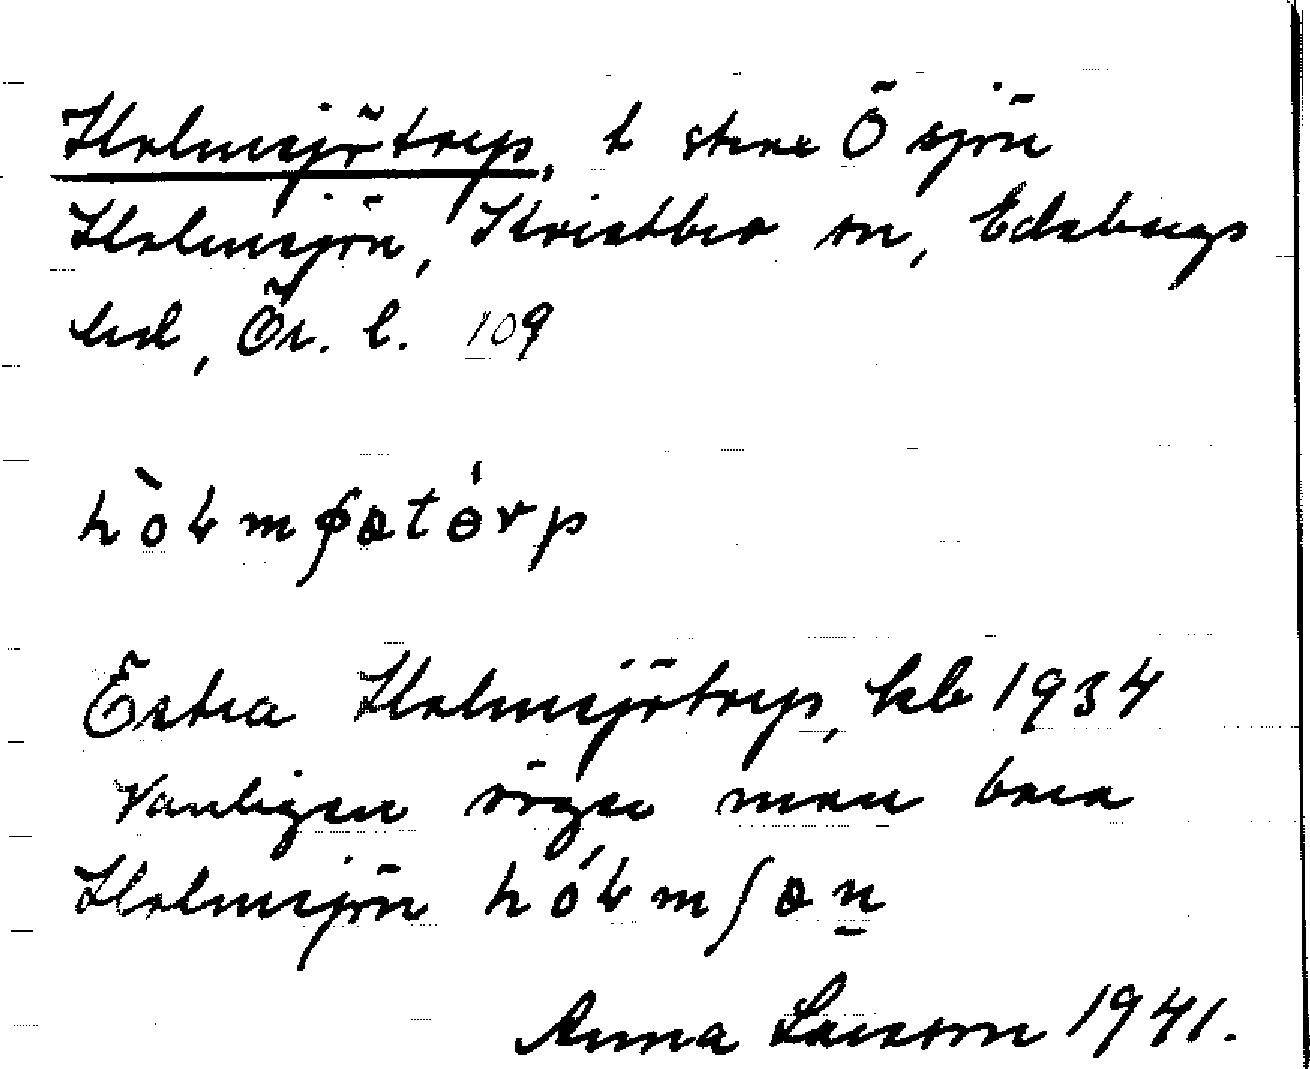 Holmsjötorp, t stene Ö sjön
Holmsjön, Kvistbro sn, Edsbergs
hd, Ör. l. 109
Estra Holmsjötorp, kb 1934
Vanligen säger man bara
Holmsjön
Anna Larsson 1941.